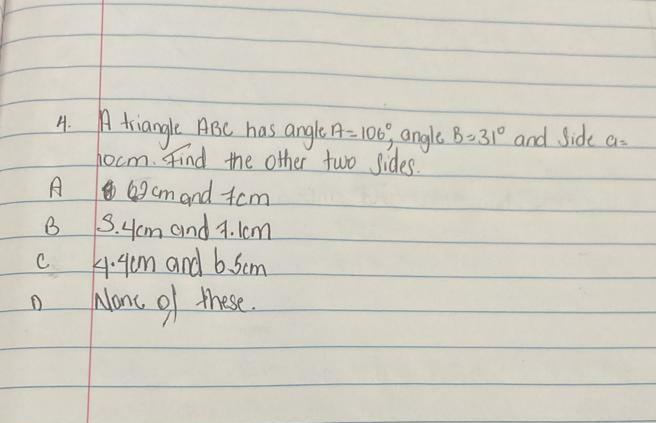 4. A triangle ABC has angle A=106°, angle B=31° and side a=
10cm. Find the other two sides.
A 62cm and 7cm
B 5.4cm and 7.1cm
C 4.4cm and 6.5cm
D None of these.